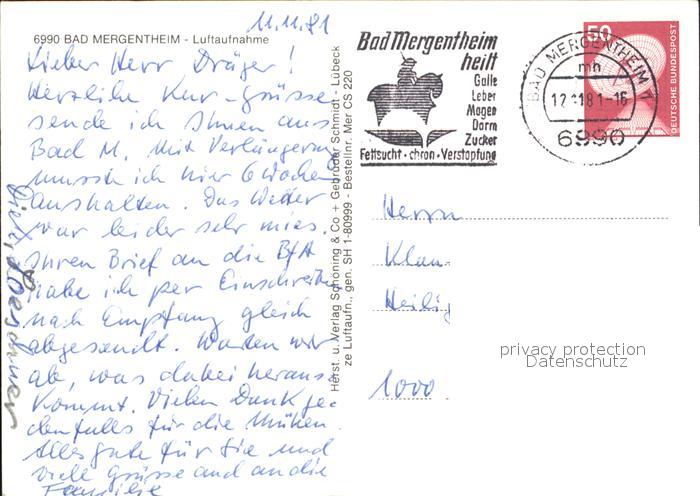 11.11.81
6990 BAD MERGENTHEIM - Luftaufnahme
Lieber Herr Dräger!
Herzliche Kur-grüsse
sende ich Ihnen aus
Bad M. Mit Verlängerung
musste ich hier 6 Wochen
aushalten. Das Wetter
war leider sehr mies.
Ihren Brief an die BfA
habe ich per Einschreiben
nach Empfang gleich
abgesandt. Warten wir
ab, was dabei heraus-
kommt. Vielen Dank je-
denfalls für die Mühen.
Alles gute für Sie und
viele Grüsse and an die
Familie
Herst. u. Verlag Schöning & Co + Gebrüder Schmidt - Lübeck
ze Luftaufn., gen. SH 1-80999 - Bestellnr. Mer CS 220
Bad Mergentheim
heilt
Galle
Leber
Magen
Darm
Zucker
Fettsucht · chron · Verstopfung
BAD MERGENTHEIM 1
mh
6990
50
DEUTSCHE BUNDESPOST
Herrn
Klau
Heilig
1000
privacy protection
Datenschutz